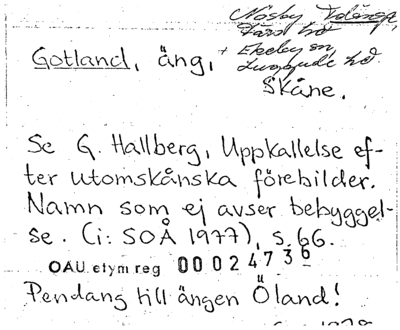 Nosby
Färs hd
Gotland, äng, + Ekeby sn,
Luggude hd.
Skåne.
Se G. Hallberg, Uppkallelse ef-
ter utomskånska förebilder.
Namn som ej avser bebyggel-
se. (i: SOÅ 1977), s. 66.
OAU etym reg 00024736
Pendang till ängen Öland!